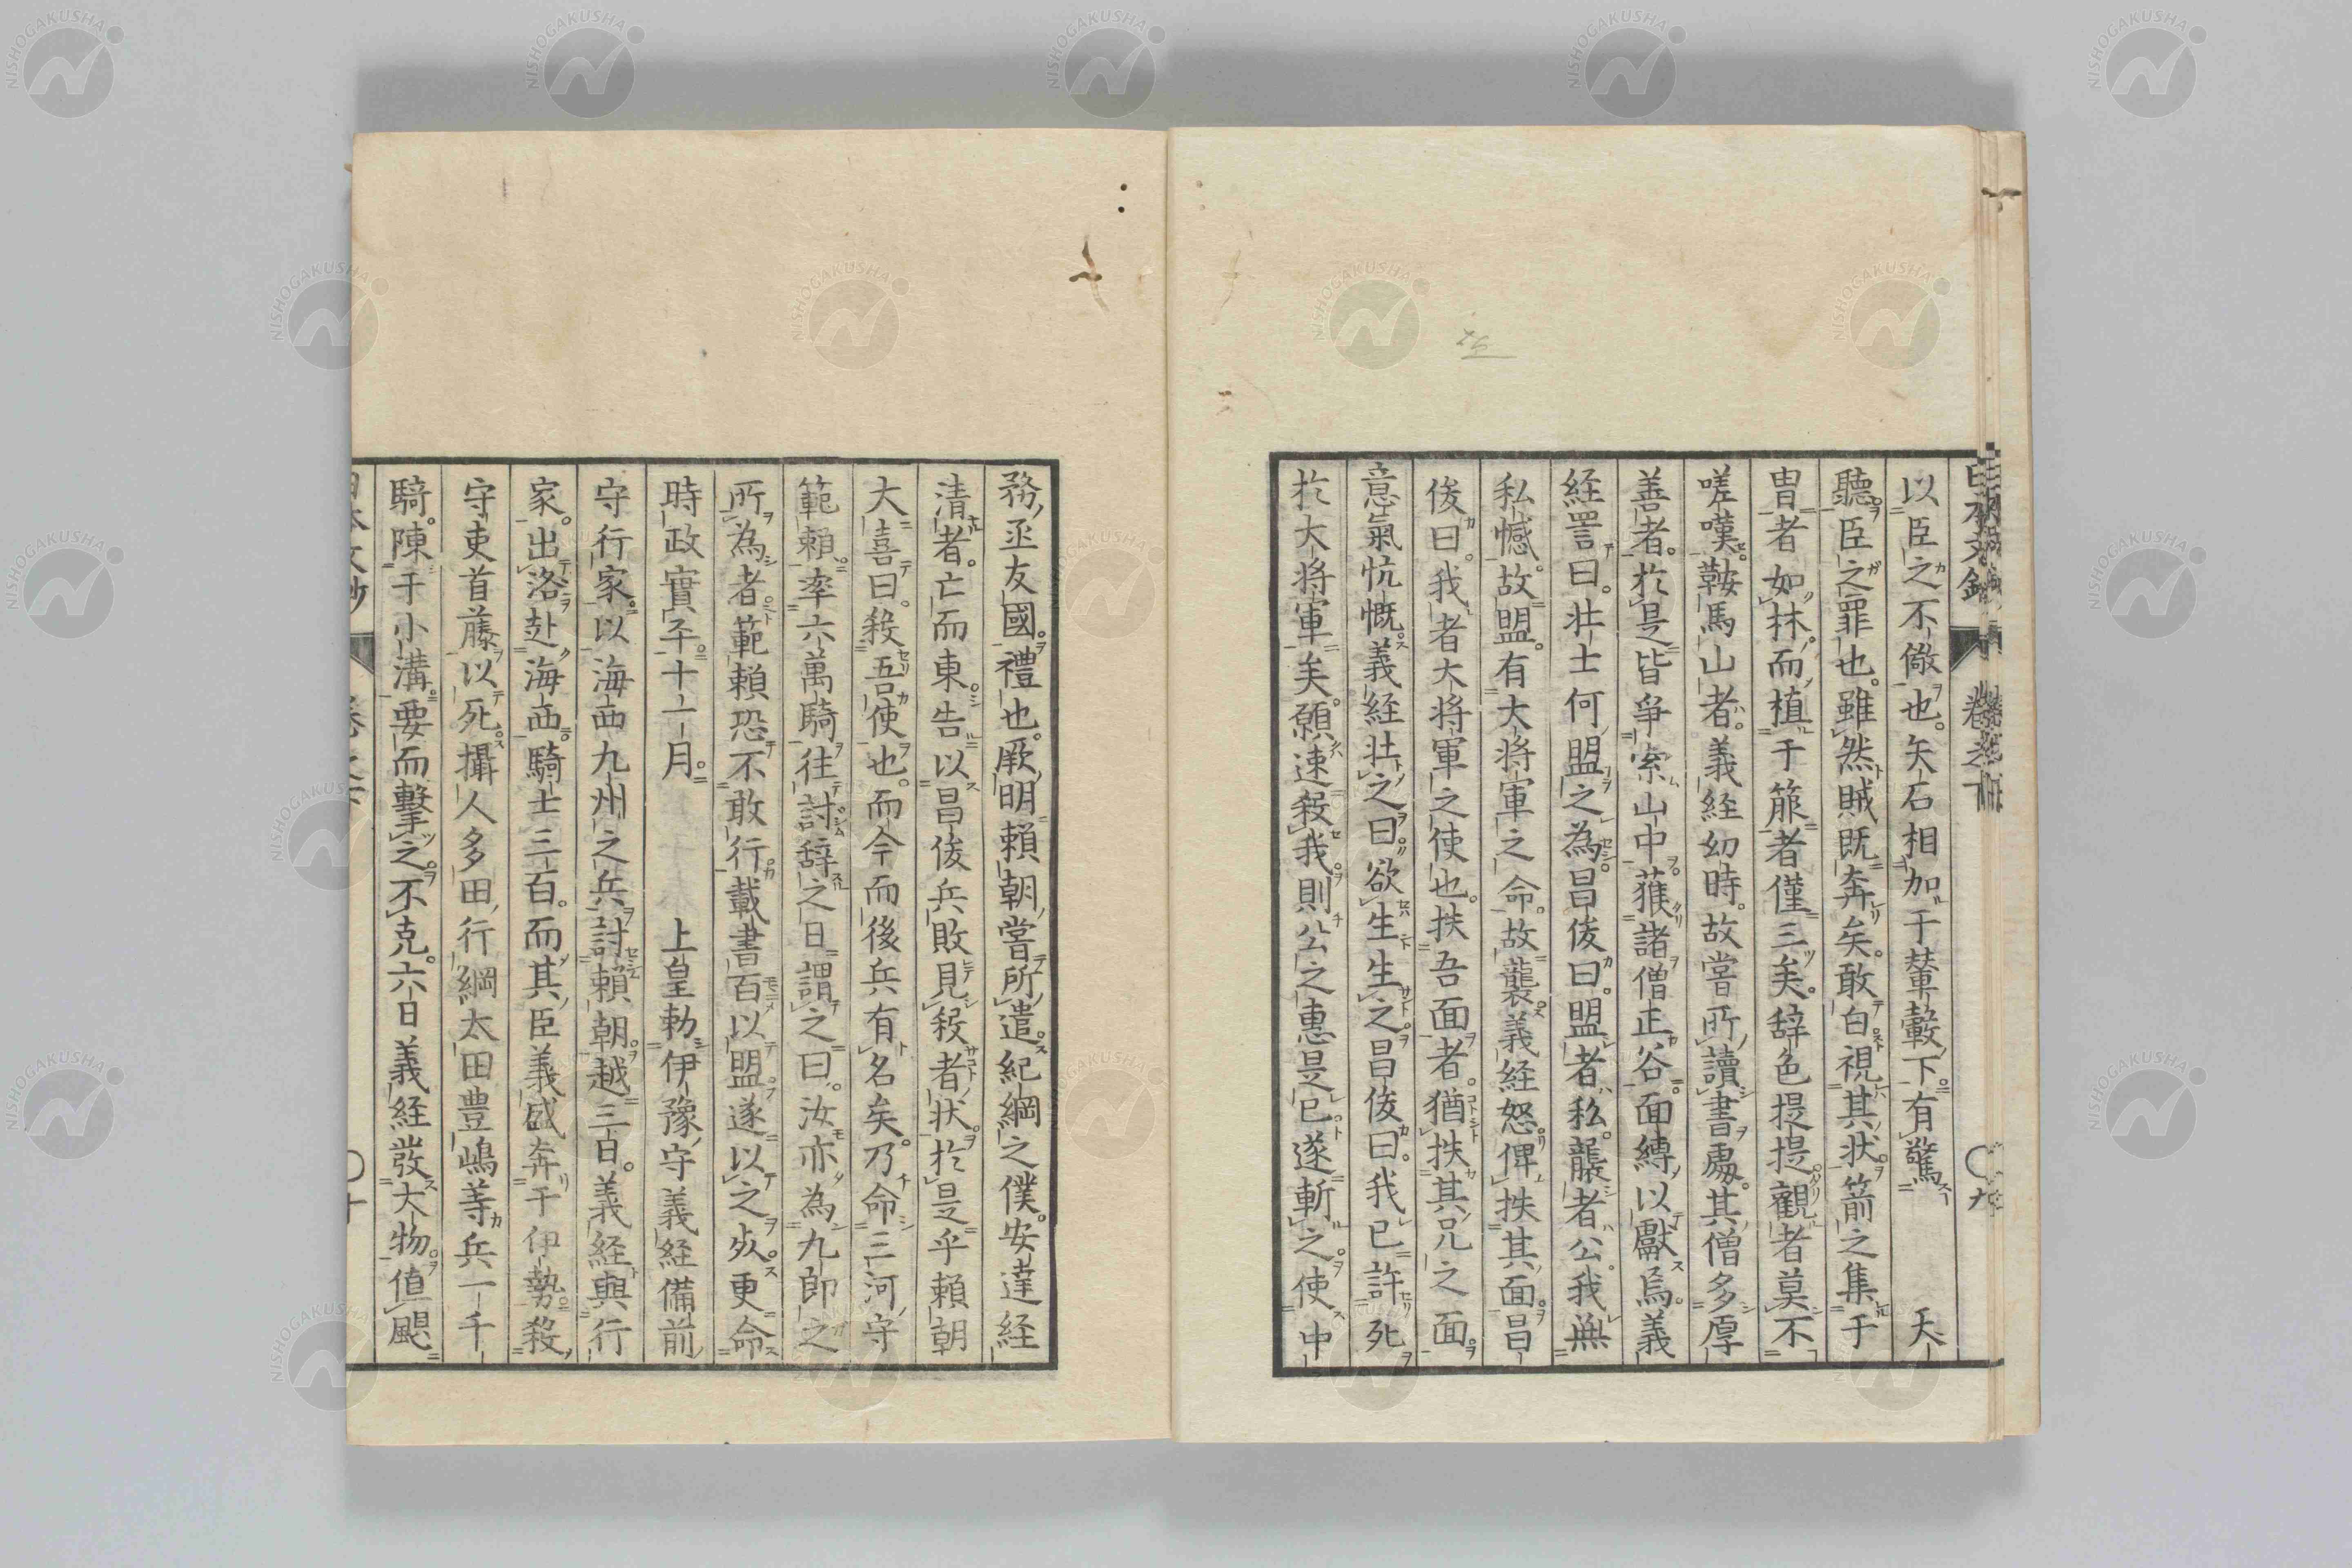 以臣之不儆也。矢石相加于輦轂下。有驚 天
聽。臣之罪也。雖然賊既奔矣。敢白視其状。箭之集于
冑者如抹。而植于箙者僅三矣。辞色提提。觀者莫不
嗟嘆。鞍馬山者。義経幼時。故嘗所讀書處。其僧多厚
善者。於是皆爭索山中。獲諸僧正谷。面縛以獻焉。義
経詈曰。壮士何盟之為。昌俊曰。盟者私。襲者公。我無
私憾。故盟。有大将軍之命。故襲。義経怒俾抶其面。昌
俊曰。我者大将軍之使也。抶吾面者。猶抶其兄之面。
意氣忼慨。義経壮之曰。欲生生之。昌俊曰。我已許死
於大将軍矣。願速殺我。則公之惠是已。遂斬之。使中
務丞友國。禮也。厥明賴朝嘗所遣紀綱之僕。安達経
清者。亡而東。告以昌俊兵敗見殺者状。於是乎賴朝
大喜曰。殺吾使也。而今而後兵有名矣。乃命三河守
範賴。率六萬騎往討。辞之日。謂之曰。汝亦為九郎之
所為者。範賴恐不敢行。載書百以盟。遂以之死。更命
時政實。平十一月。 上皇勅伊豫守義経備前
守行家。以海西九州之兵。討賴朝。越三百。義経與行
家。出洛赴海西。騎士三百。而其臣義盛奔于伊勢。殺
守吏首藤以死。攝人多田行綱太田豊嶋等兵一千
騎。陳于小溝。要而擊之。不克。六日義経発大物。値颶